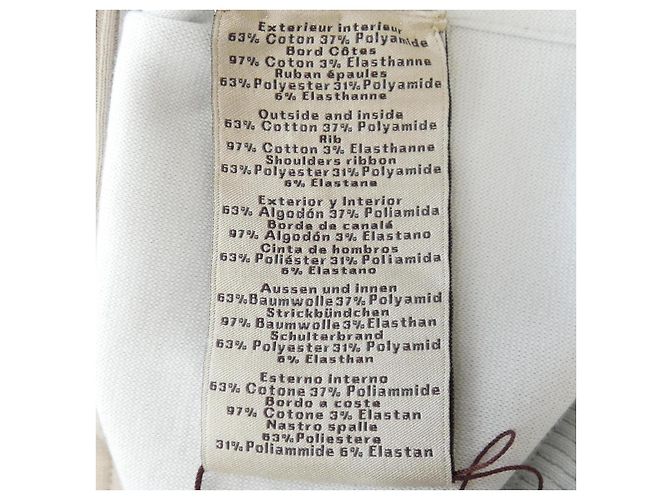 Exterieur interieur
63% Coton 37% Polyamide
Bord Côtes
97% Coton 3% Elasthanne
Ruban épaules
63%Polyester 31% Polyamide
6% Elasthanne
Outside and inside
63% Cotton 37% Polyamide
Rib
97% Cotton 3% Elasthanne
Shoulders ribbon
63% Polyester 31% Polyamide
6% Elastane
Exterior y Interior
63% Algodón 37% Poliamida
Borde de canalé
97% Algodón 3% Elastano
Cinta de hombros
63% Poliéster 31% Poliamida
6% Elastano
Aussen und innen
63%Baumwolle 37% Polyamid
Strickbündchen
97% Baumwolle 3% Elasthan
Schulterbrand
63% Polyester 31% Polyamid
6% Elasthan
Esterno interno
63% Cotone 37% Poliammide
Bordo a coste
97% Cotone 3% Elastan
Nastro spalle
63%Poliestere
31% Poliammide 6% Elastan